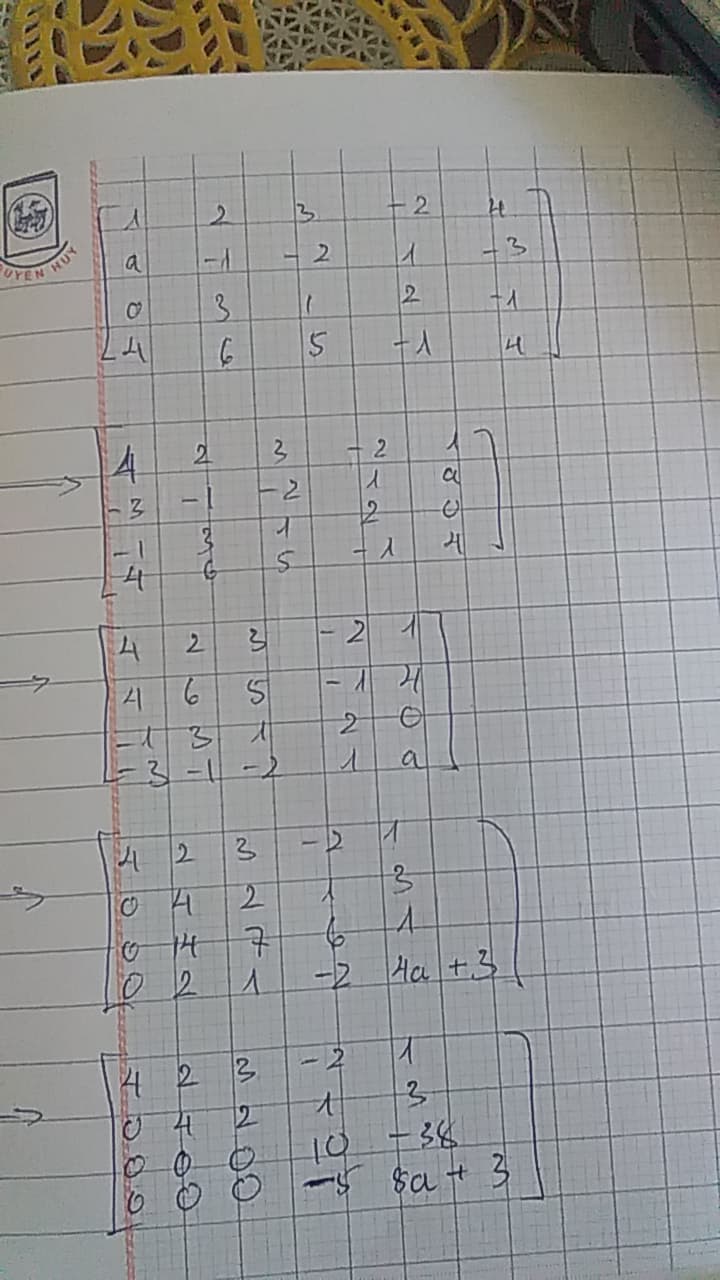 1 2 3 -2 4
a -1 -2 1 -3
0 3 1 2 -1
4 6 5 -1 4
UYEN HUY
⇒ 4 2 3 -2 1
-3 -1 -2 1 a
-1 3 1 2 0
4 6 5 -1 4
→ 4 2 3 -2 1
4 6 5 -1 4
-1 3 1 2 0
-3 -1 -2 1 a
⇒ 4 2 3 -2 1
0 4 2 1 3
0 14 7 6 1
0 2 1 -2 4a + 3
⇒ 4 2 3 -2 1
0 4 2 1 3
0 0 0 10 -38
0 0 0 -5 8a + 3